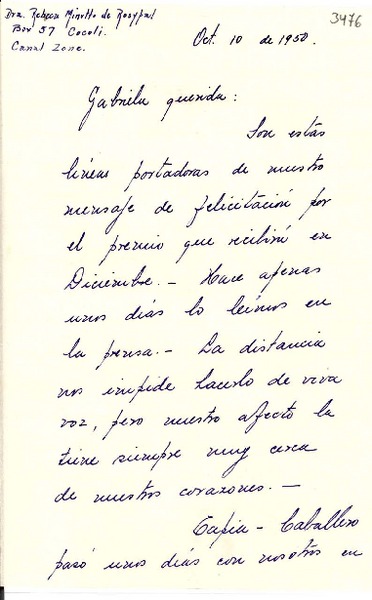 Dra. Rebeca Minotto de Rosypal
Box 57 Cocoli.
Canal Zone.
3476
Oct. 10 de 1950.
Gabriela querida:
Son estas
líneas portadoras de nuestro
mensaje de felicitación por
el premio que recibirá en
Diciembre. - Hace apenas
unos días lo leímos en
la prensa. - La distancia
nos impide hacerlo de viva
voz, pero nuestro afecto la
tiene siempre muy cerca
de nuestros corazones. -
Tapia - Caballero
pasó unos días con nosotros en